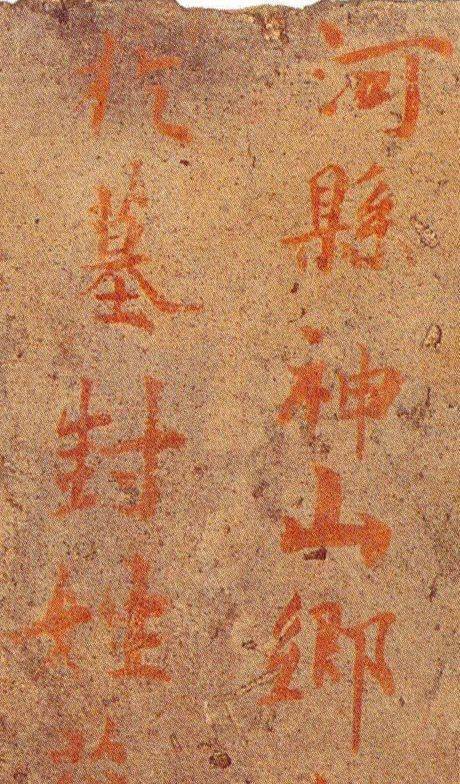 河縣神山鄉
墓封姓